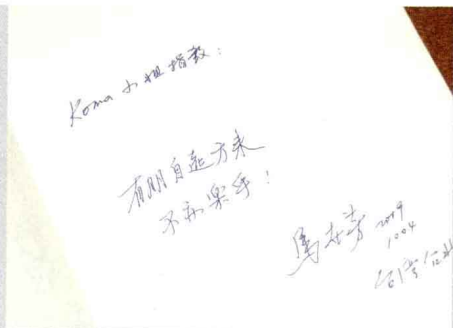 Koma 小姐指教：
有朋自远方来
不亦樂乎！
馬世芳 2019
1004